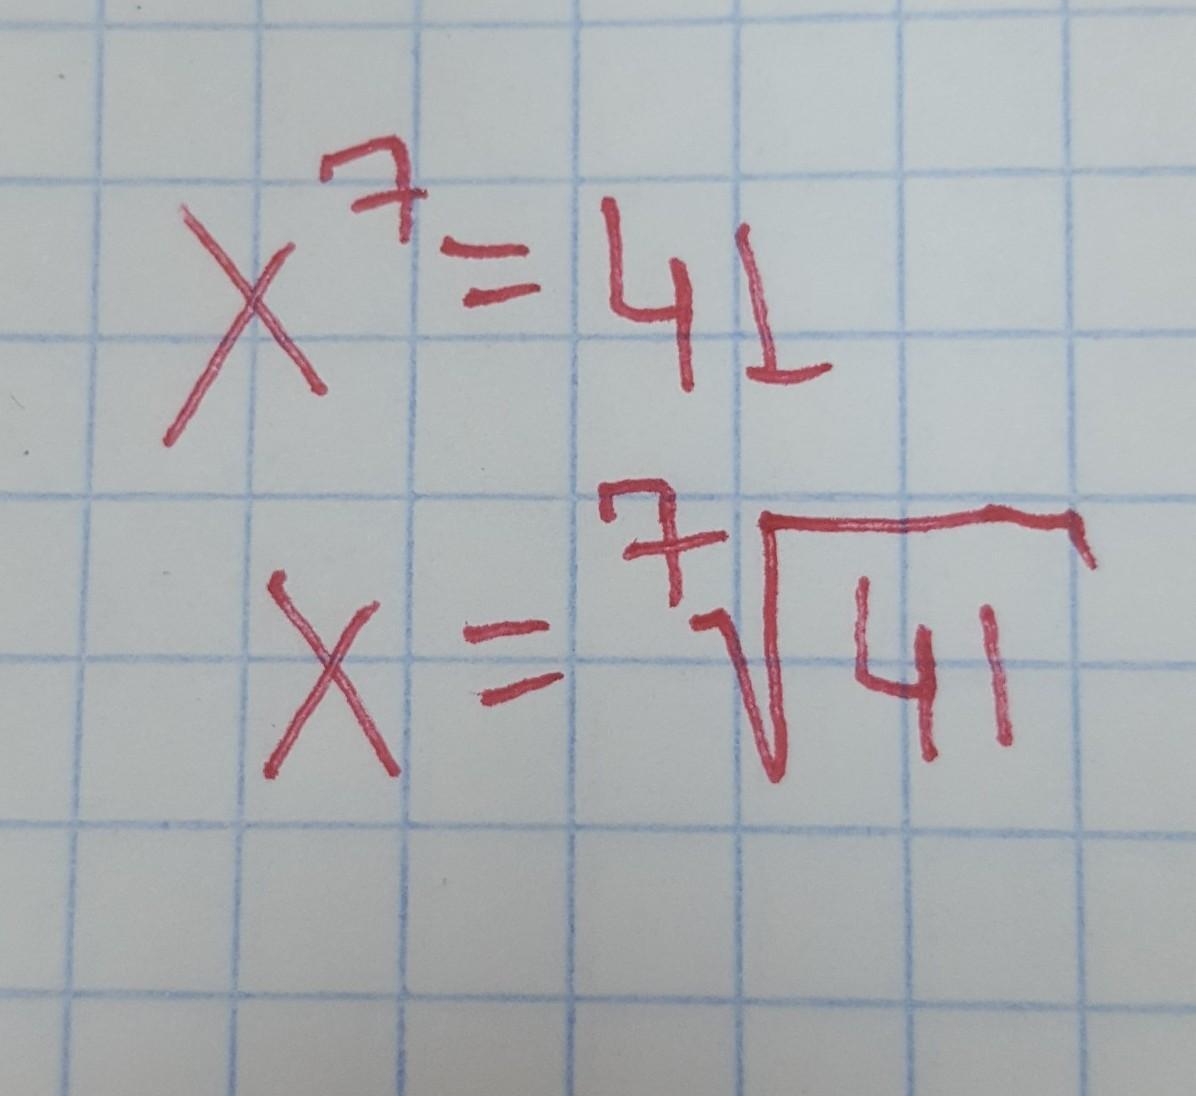 X⁷ = 41
X = ⁷√41